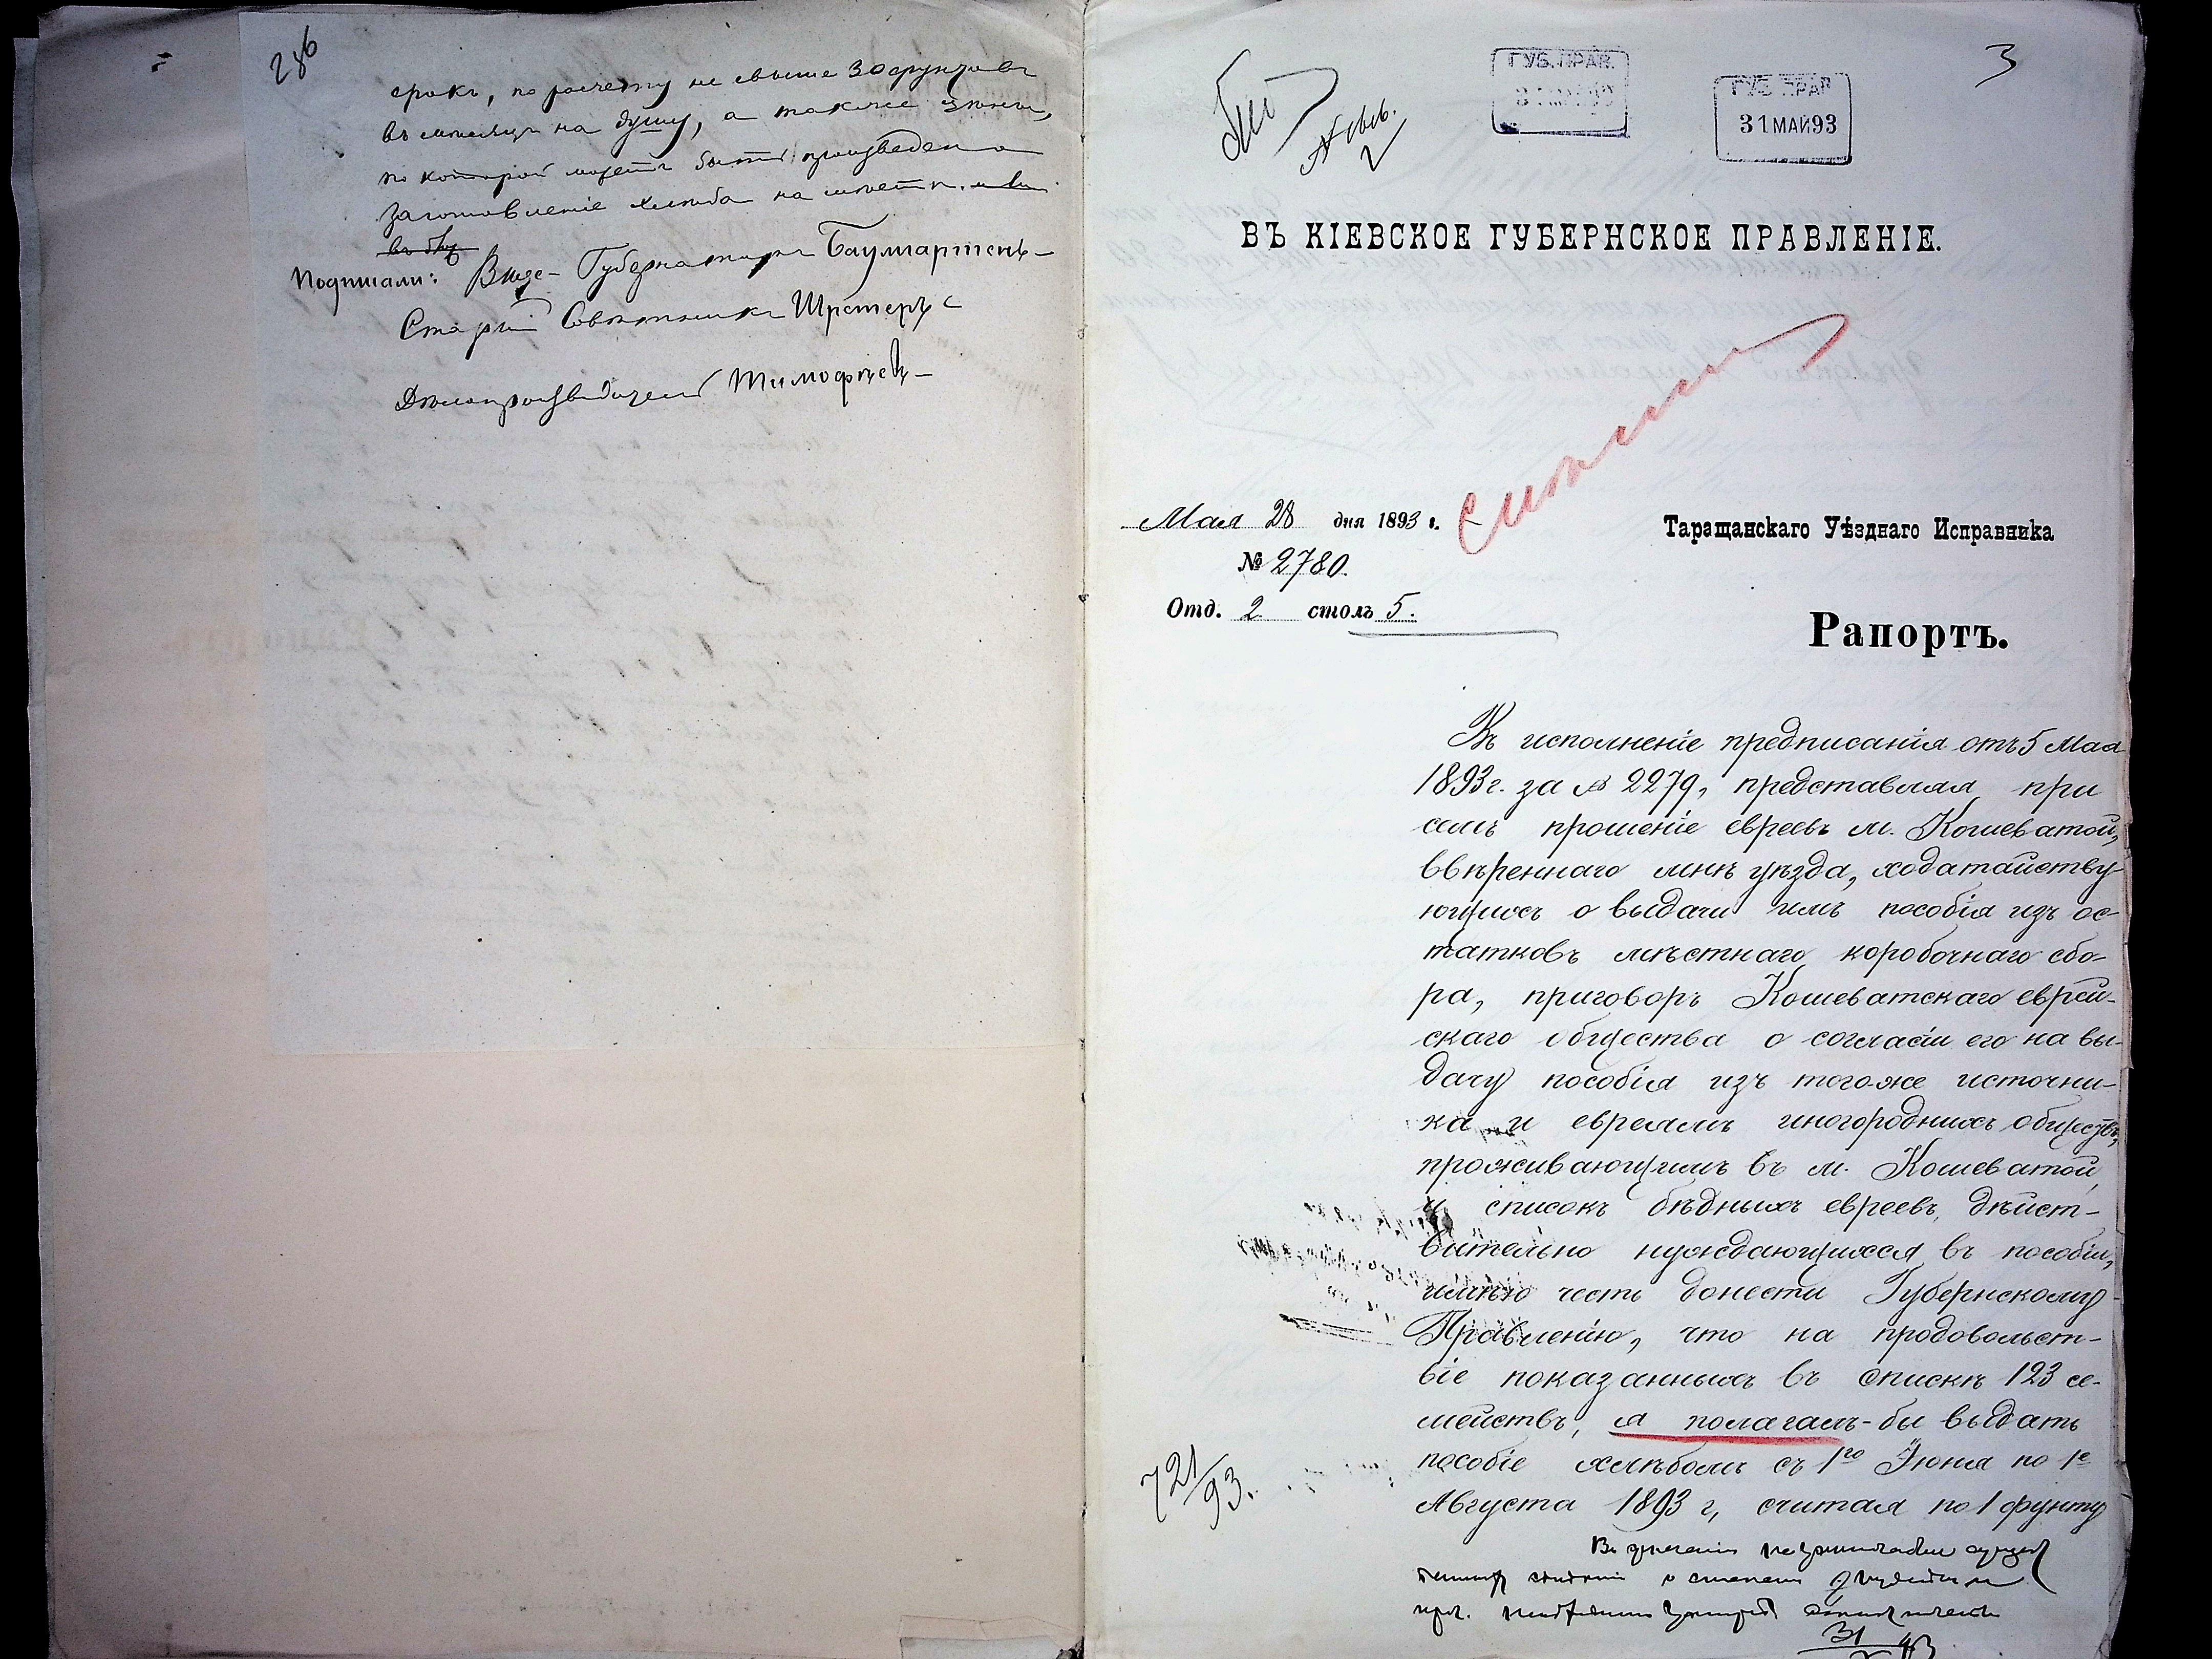 286
срокъ, по расчету не свыше 30 фунтовъ
въ мѣсяцъ на душу, а также цѣны,
по которой можетъ быть произведено
заготовленіе хлѣба на мѣстѣ.
Подписали: Вице-Губернаторъ Баумгартенъ
Старшій Совѣтникъ Шретеръ
Дѣлопроизводитель Тимофѣевъ
3
ГУБ. ПРАВ.
ГУБ. ПРАВ.
31 МАЙ 93
ВЪ КІЕВСКОЕ ГУБЕРНСКОЕ ПРАВЛЕНІЕ.
Мая 28 дня 1893 г.
№ 2780.
Отд. 2 столъ 5.
Таращанскаго Уѣзднаго Исправника
Рапортъ.
Въ исполненіе предписанія отъ 5 Мая
1893 г. за № 2279, представляя при
семъ прошеніе евреевъ м. Кошеватой,
ввѣреннаго мнѣ уѣзда, ходатайству-
ющихъ о выдачи имъ пособія изъ ос-
татковъ мѣстнаго коробочнаго сбо-
ра, приговоръ Кошеватскаго еврей-
скаго общества о согласіи его на вы-
дачу пособія изъ того-же источни-
ка и евреямъ иногороднихъ обществъ,
проживающимъ въ м. Кошеватой,
и списокъ бѣдныхъ евреевъ, дѣйст-
вительно нуждающихся въ пособіи,
имѣю честь донести Губернскому
Правленію, что на продовольст-
віе показанныхъ въ спискѣ 123 се-
мействъ, я полагалъ-бы выдать
пособіе хлѣбомъ съ 1го Іюня по 1е
Августа 1893 г, считая по 1 фунту
721/93.
31